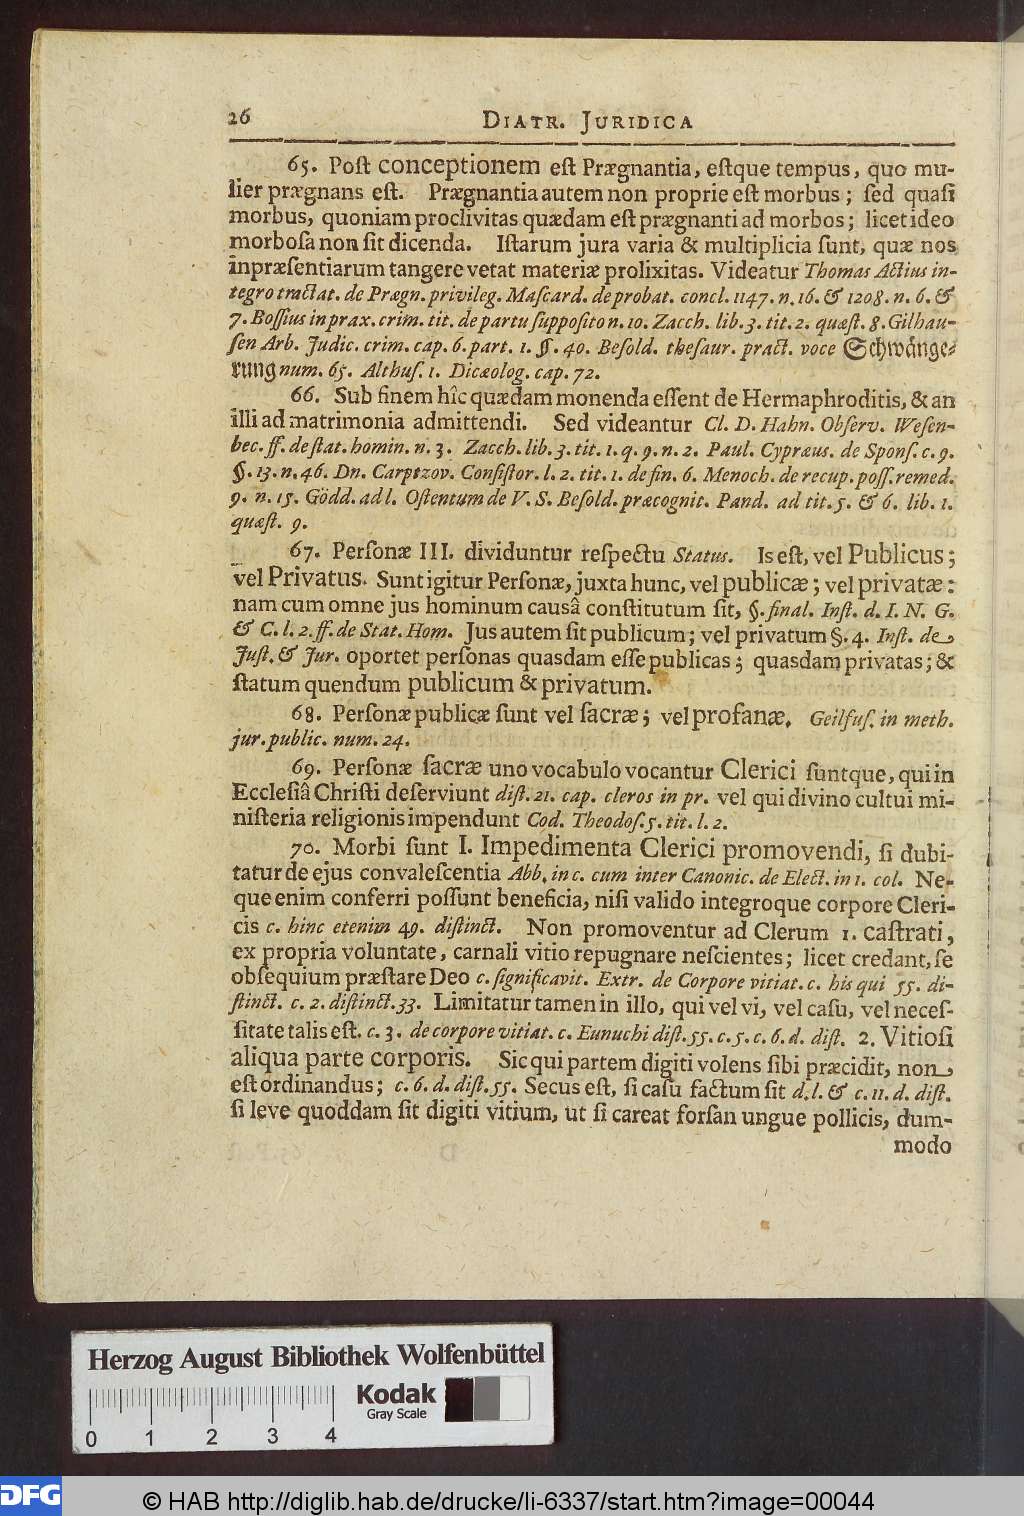 26 DIATR. JURIDICA
65. Poſt conceptionem eſt Prægnantia, eſtque tempus, quo mu-
lier prægnans eſt. Prægnantia autem non proprie eſt morbus; ſed quaſi
morbus, quoniam proclivitas quædam eſt prægnanti ad morbos; licet ideo
morboſa non ſit dicenda. Iſtarum jura varia & multiplicia ſunt, quæ nos
inpræſentiarum tangere vetat materiæ prolixitas. Videatur Thomas Actius in-
tegro tractat. de Prægn. privileg. Maſcard. de probat. concl. 1147. n. 16. & 1208. n. 6. &
7. Boſſius in prax. crim. tit. de partu ſuppoſito n. 10. Zacch. lib. 3. tit. 2. quæſt. 8. Gilhau-
ſen Arb. Judic. crim. cap. 6. part. 1. §. 40. Beſold. theſaur. pract. voce Schwänge-
rung num. 65. Althuſ. 1. Dicæolog. cap. 72.
66. Sub finem hîc quædam monenda eſſent de Hermaphroditis, & an
illi ad matrimonia admittendi. Sed videantur Cl. D. Hahn. Obſerv. Weſen-
bec. ff. de ſtat. homin. n. 3. Zacch. lib. 3. tit. 1. q. 9. n. 2. Paul. Cypræus. de Sponſ. c. 9.
§. 13. n. 46. Dn. Carpzov. Conſiſtor. l. 2. tit. 1. defin. 6. Menoch. de recup. poſſ. remed.
9. n. 15. Gödd. ad l. Oſtentum de V. S. Beſold. præcognit. Pand. ad tit. 5. & 6. lib. 1.
quæſt. 9.
67. Perſonæ III. dividuntur reſpectu Status. Is eſt, vel Publicus;
vel Privatus. Sunt igitur Perſonæ, juxta hunc, vel publicæ; vel privatæ:
nam cum omne jus hominum causâ conſtitutum ſit, §. final. Inſt. d. I. N. G.
& C. l. 2. ff. de Stat. Hom. Jus autem ſit publicum; vel privatum §. 4. Inſt. de
Juſt. & Jur. oportet perſonas quasdam eſſe publicas; quasdam privatas; &
ſtatum quendum publicum & privatum.
68. Perſonæ publicæ ſunt vel ſacræ; vel profanæ. Geilfuſ. in meth.
jur. public. num. 24.
69. Perſonæ ſacræ uno vocabulo vocantur Clerici ſuntque, qui in
Eccleſiâ Chriſti deſerviunt diſt. 21. cap. cleros in pr. vel qui divino cultui mi-
niſteria religionis impendunt Cod. Theodoſ. 5. tit. l. 2.
70. Morbi ſunt I. Impedimenta Clerici promovendi, ſi dubi-
tatur de ejus convaleſcentia Abb. in c. cum inter Canonic. de Elect. in 1. col. Ne-
que enim conferri poſſunt beneficia, niſi valido integroque corpore Cleri-
cis c. hinc etenim 49. diſtinct. Non promoventur ad Clerum 1. caſtrati,
ex propria voluntate, carnali vitio repugnare neſcientes; licet credant, ſe
obſequium præſtare Deo c. ſignificavit. Extr. de Corpore vitiat. c. his qui 55. di-
ſtinct. c. 2. diſtinct. 33. Limitatur tamen in illo, qui vel vi, vel caſu, vel neceſ-
ſitate talis eſt. c. 3. de corpore vitiat. c. Eunuchi diſt. 55. c. 5. c. 6. d. diſt. 2. Vitioſi
aliqua parte corporis. Sic qui partem digiti volens ſibi præcidit, non
eſt ordinandus; c. 6. d. diſt. 55. Secus eſt, ſi caſu factum ſit d. l. & c. 11. d. diſt.
ſi leve quoddam ſit digiti vitium, ut ſi careat forſan ungue pollicis, dum-
modo
Herzog August Bibliothek Wolfenbüttel
Kodak
Gray Scale
0 1 2 3 4
DFG
© HAB http://diglib.hab.de/drucke/li-6337/start.htm?image=00044